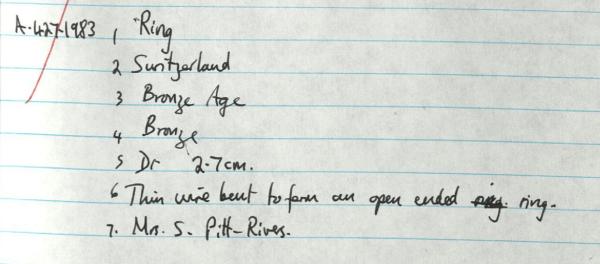 A.427.1983 1 Ring
2 Switzerland
3 Bronze Age
4 Bronze
5 Dr 2.7cm.
6 Thin wire bent to form an open ended ring.
7. Mrs. S. Pitt-Rivers.